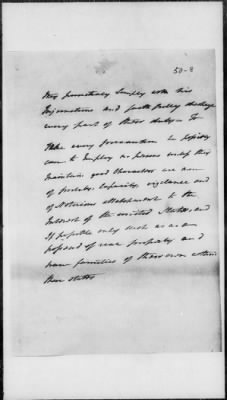 50-8
May punctually Comply with his
Injunctions and faithfully discharge
every part of their duty. To
Take every precaution he possibly
can to Employ no persons unless they
maintain good Characters are men
of probity, vigilance and
of Notorious attachment to the
Interest of the united States, and
if possible only such as are
possessed of real property and
have families of their own within
these states